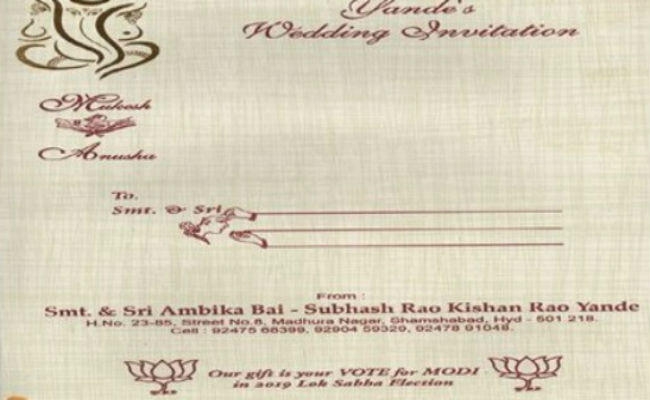 Yande's
Wedding Invitation
Mukesh
Anusha
To,
Smt. & Sri
From :
Smt. & Sri Ambika Bai - Subhash Rao Kishan Rao Yande
H.No. 23-85, Street No.8, Madhura Nagar, Shamshabad, Hyd - 501 218.
Call : 92475 68399, 92904 59329, 92478 91048.
Our gift is your VOTE for MODI
in 2019 Lok Sabha Election